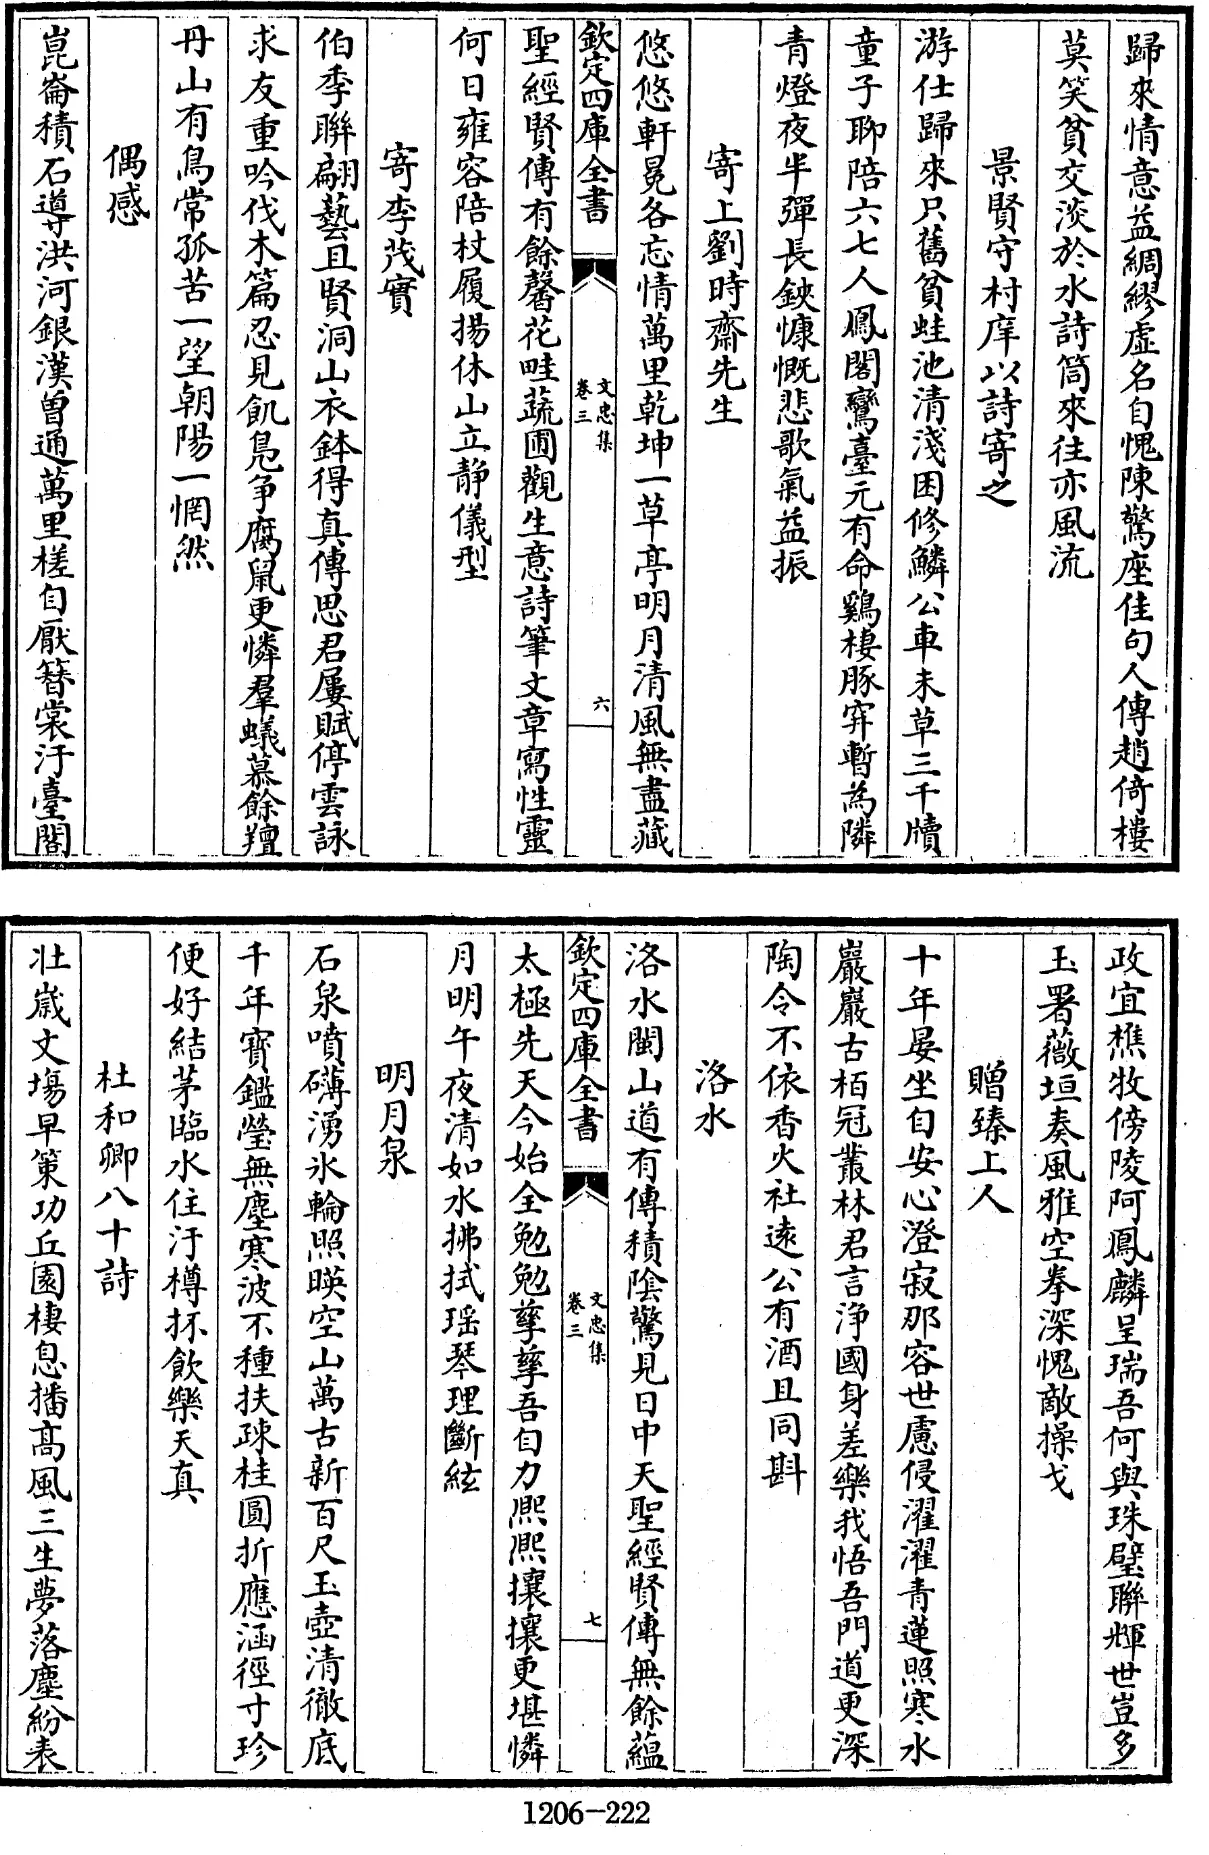 歸來情意益綢繆虛名自愧陳驚座佳句人傳趙倚樓
莫笑貧交淡於水詩筒來往亦風流
景賢守村庠以詩寄之
游仕歸來只舊貧蛙池清淺困修鱗公車未草三千牘
童子聊陪六七人鳳閣鸞臺元有命鷄棲豚穽暫為隣
青燈夜半彈長鋏慷慨悲歌氣益振
寄上劉時齋先生
悠悠軒冕各忘情萬里乾坤一草亭明月清風無盡藏
欽定四庫全書
文忠集
卷三
六
聖經賢傳有餘馨花畦蔬圃觀生意詩筆文章寫性靈
何日雍容陪杖履揚休山立靜儀型
寄李茂實
伯季聨翩藝且賢洞山衣鉢得真傳思君屢賦停雲詠
求友重吟伐木篇忍見飢鳧爭腐鼠更憐羣蟻慕餘羶
丹山有鳥常孤苦一望朝陽一惘然
偶感
崑崙積石導洪河銀漢曽通萬里槎自厭簪裳汙臺閣
政宜樵牧傍陵阿鳳麟呈瑞吾何與珠璧聨輝世豈多
玉署薇垣奏風雅空拳深愧敵操戈
贈臻上人
十年晏坐自安心澄寂那容世慮侵濯濯青蓮照寒水
巖巖古栢冠叢林君言淨國身差樂我悟吾門道更深
陶令不依香火社逺公有酒且同斟
洛水
洛水閩山道有傳積陰驚見日中天聖經賢傳無餘蘊
欽定四庫全書
文忠集
卷三
七
太極先天今始全勉勉孳孳吾自力熈熈攘攘更堪憐
月明午夜清如水拂拭瑶琴理斷絃
明月泉
石泉噴礴湧氷輪照暎空山萬古新百尺玉壺清徹底
千年寳鑑瑩無塵寒波不種扶疎桂圓折應涵徑寸珍
便好結茅臨水住汙樽抔飲樂天真
杜和卿八十詩
壯嵗文塲早策功丘園棲息播髙風三生夢落塵紛表
1206-222